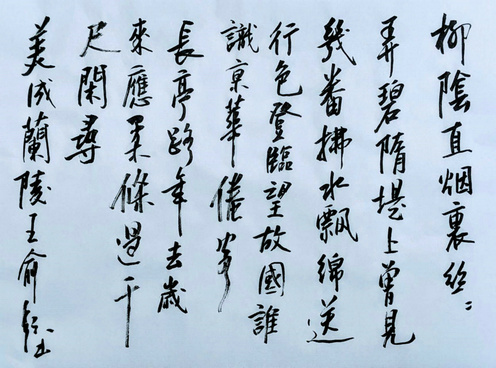 柳陰直烟裏丝〻
弄碧隋堤上曾見
幾番拂水飄綿送
行色登臨望故國誰
識京華倦客
長亭路年去歲
來應柔條過千
尺閑尋
美成蘭陵王俞